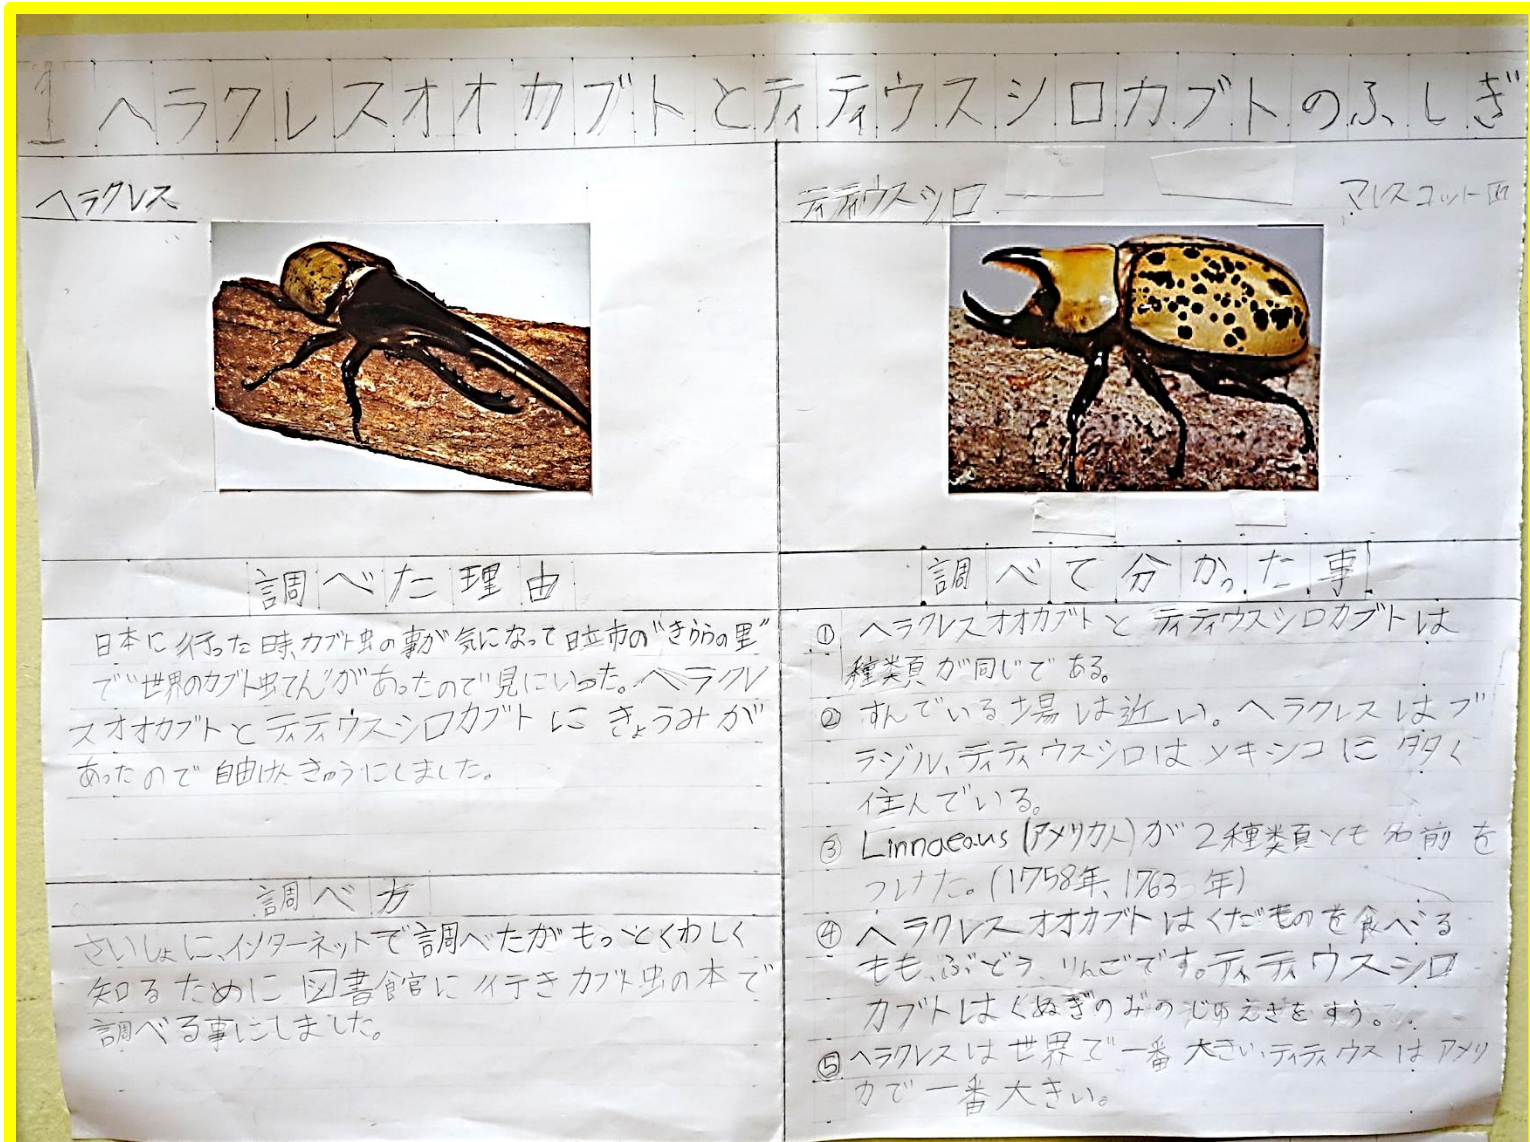 1 ヘラクレスオオカブトとティティウスシロカブトのふしぎ
ヘラクレス
調べた理由
日本に行った時、カブト虫の事が気になって日立市の"きららの里"
で"世界のカブト虫てん"があったので見にいった。ヘラクレ
スオオカブトとティティウスシロカブトにきょうみが
あったので自由けんきゅうにしました。
調べ方
さいしょに、インターネットで調べたがもっとくわしく
知るために図書館に行きカブト虫の本で
調べる事にしました。
ティティウスシロ
マレスコット
調べて分かった事
① ヘラクレスオオカブトとティティウスシロカブトは
種類が同じである。
② すんでいる場は近い。ヘラクレスはブ
ラジル、ティティウスシロはメキシコに多く
住んでいる。
③ Linnaeaus (アメリカ人)が2種類とも名前を
つけた。(1758年、1763年)
④ ヘラクレスオオカブトはくだものを食べる
もも、ぶどう、りんごです。ティティウスシロ
カブトはくぬぎのみのじゅえきをすう。
⑤ ヘラクレスは世界で一番大きい、ティティウスはアメリ
カで一番大きい。